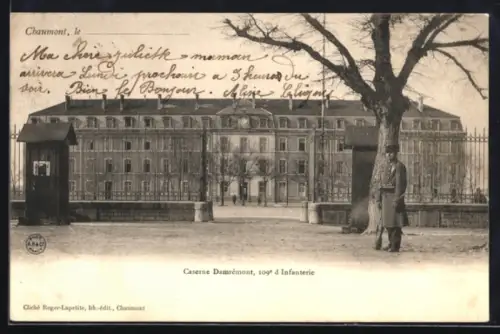 Chaumont, le
Ma chère maman
arrivera Lundi prochaine a 3 heures du
soir. Bien le Bonjour.
Caserne Damrémont, 109e d Infanterie
Cliché Roger-Lapetite, lib.-édit., Chaumont